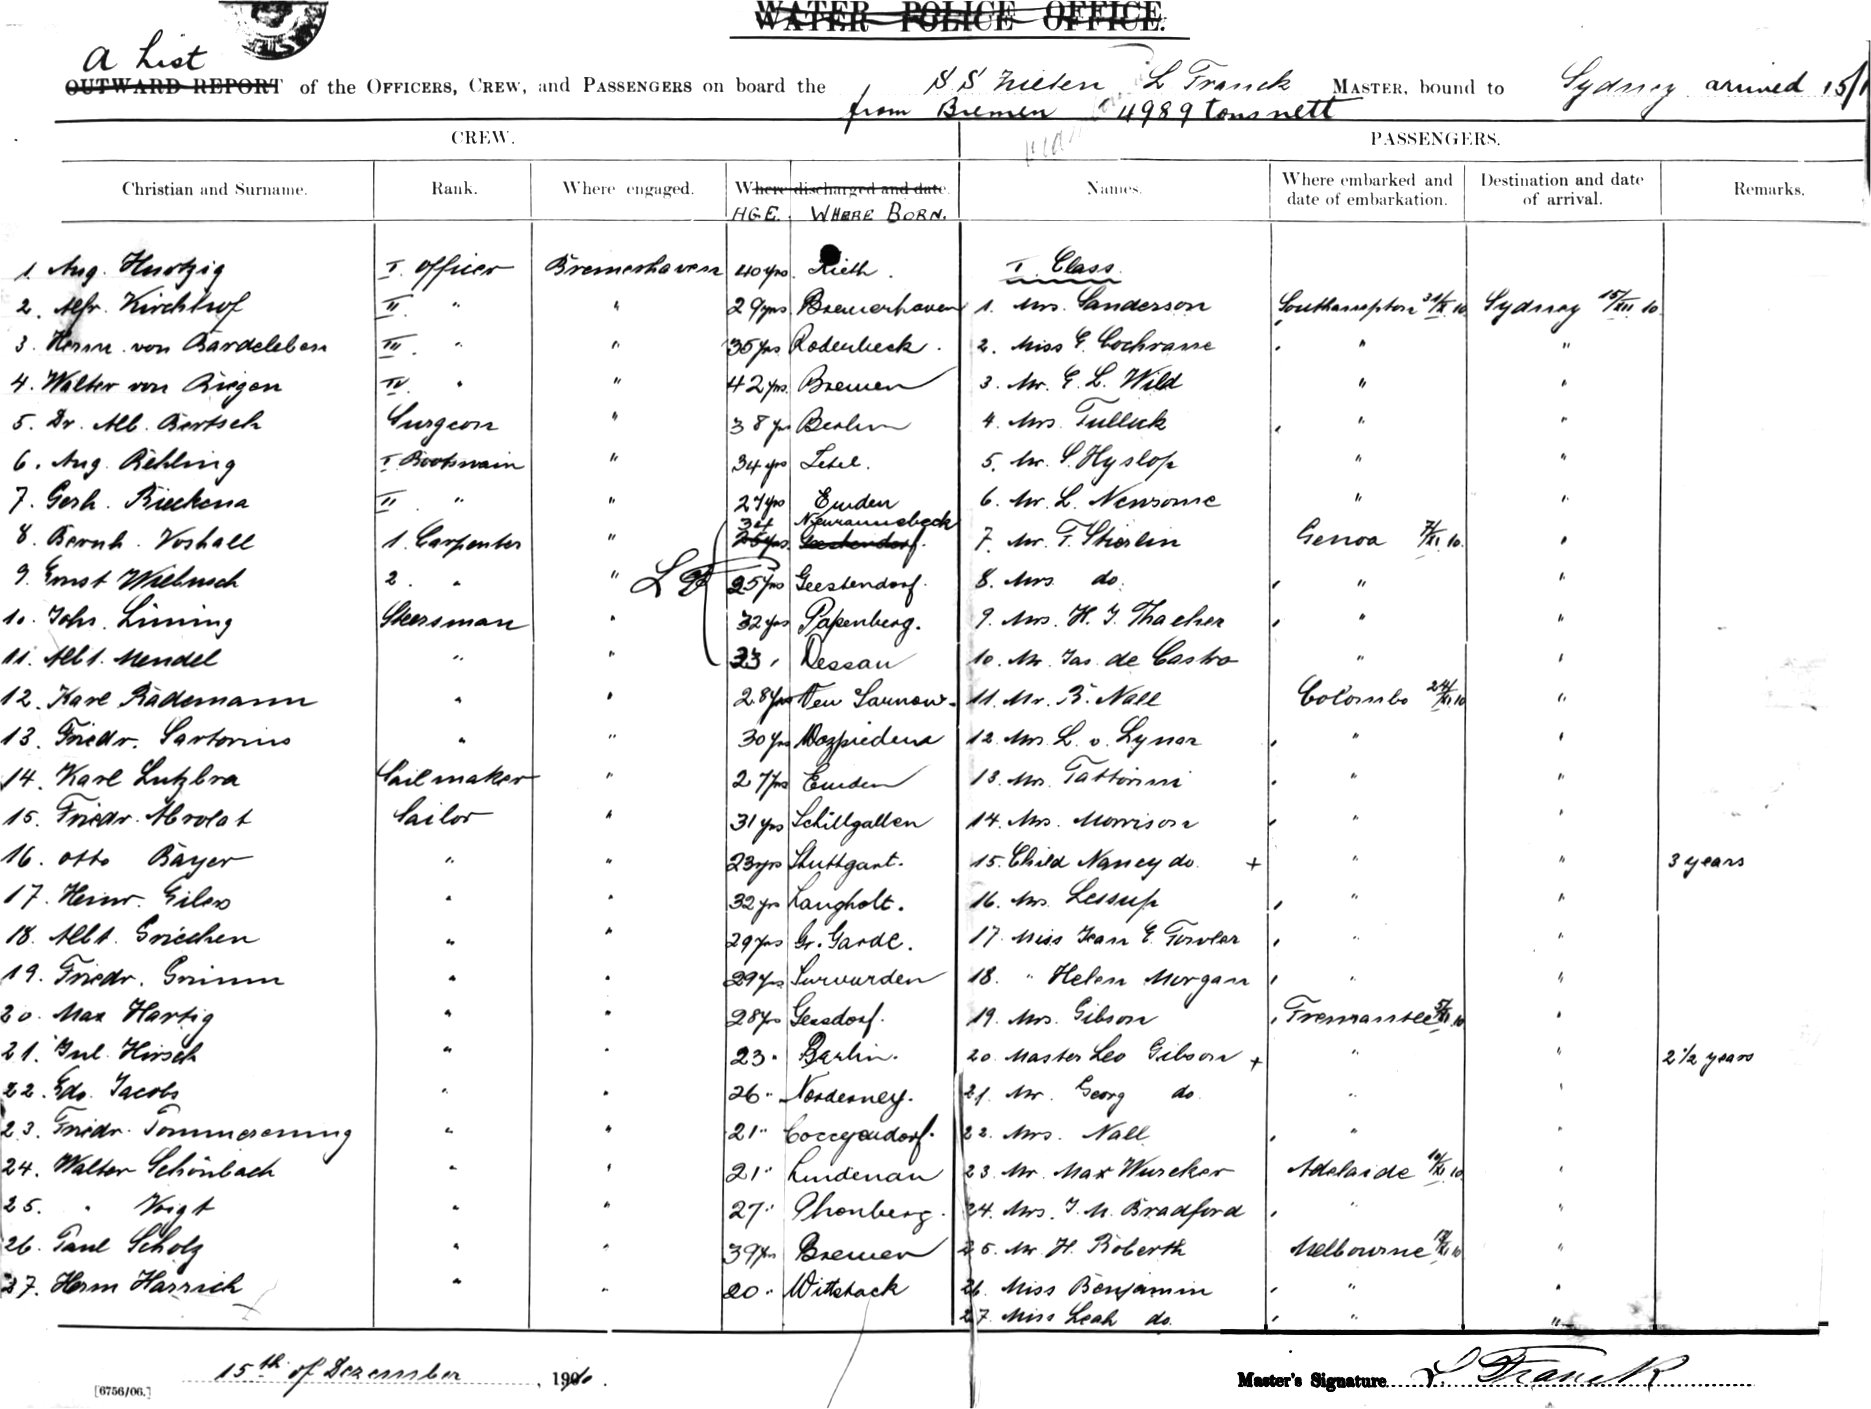 WATER POLICE OFFICE.
A List
OUTWARD REPORT of the OFFICERS, CREW, and PASSENGERS on board the S S Zieten L Franck MASTER, bound to Sydney arrived 15/1
from Bremen 4989 tons nett
CREW. PASSENGERS.
Christian and Surname. Rank. Where engaged. Where discharged and date. Names. Where embarked and date of embarkation. Destination and date of arrival. Remarks.
AGE. WHERE BORN.
1. Aug. Hurtzig I. Officer Bremerhaven 40 yrs. Rieth. I. Class.
2. Alfr. Kirchhof II. " " 29 yrs. Bremerhaven 1. Mrs. Sanderson Southampton 31/X.10. Sydney 15/XII.10
3. Herm. von Bardeleben III. " " 35 yrs Rodenbeck. 2. Miss E. Cochrane " "
4. Walter von Riegen IV. " " 42 yrs. Bremen 3. Mr. E. L. Wild " "
5. Dr. Alb. Bertsch Surgeon " 38 yrs Berlin 4. Mrs. Tulluk " "
6. Aug. Behling I Bootswain " 34 yrs Zetel. 5. Mr. S. Hyslop " "
7. Gerh. Rieckena II. " " 27 yrs Emden 6. Mr. L. Newsome " "
8. Bernh. Voshall 1. Carpenter " 34 25 yrs. Neuraunebeck Geestendorf. 7. Mr. T. Stierlin Genoa 7/XI.10. "
9. Ernst Wiebusch 2. " " L F 25 yrs Geestendorf. 8. Mrs. do. " "
10. Johs. Lüning Steersman " 32 yrs Papenberg. 9. Mrs. H. J. Thacher " "
11. Albt. Mendel " " 23 " Dessau 10. Mr. Jas. de Castro " "
12. Karl Rademann " " 28 yrs Neu Sarnow. 11. Mr. B. Nall Colombo 24/XI.10 "
13. Friedr. Sartorius " " 30 yrs 12. Mrs. L. v. Lynar " "
14. Karl Lutzbra Sailmaker " 27 yrs Emden 13. Mrs. Tattorini " "
15. Friedr. Abrolat Sailor " 31 yrs Schillgallen 14. Mrs. Morrison " "
16. Otto Bayer " " 23 yrs Stuttgart. 15. Child Nancy do. + " " 3 years
17. Heinr. Eilers " " 32 yrs Langholt. 16. Mrs. Lessup " "
18. Albt. Griechen " " 29 yrs Gr. Garde. 17. Miss Jean E. Fowler " "
19. Friedr. Grimm " " 29 yrs Surwurden 18. " Helen Morgan " "
20. Max Hartig " " 28 yrs Gersdorf. 19. Mrs. Gibson Fremantle 5/XII.10 "
21. Jul. Hirsch " " 23 " Berlin. 20. Master Leo Gibson + " " 2 1/2 years
22. Edo. Jacobs " " 26 " Norderney. 21. Mr. Georg do. " "
23. Friedr. Pommerening " " 21 " Coccejendorf. 22. Mrs. Nall " "
24. Walter Schönbach " " 21 " Lindenau 23. Mr. Max Wurcker Adelaide 10/XII.10 "
25. " Voigt " " 27 " Thonberg. 24. Mrs. J. M. Bradford " "
26. Paul Scholz " " 39 yrs Bremen 25. Mr. H. Roberth Melbourne 13/XII.10 "
27. Herm Harrich " " 20 " Wittstock 26. Miss Benjamin " "
27. Miss Leah do. " "
15th of Dezember, 1910.
[6756/06.] Master's Signature L. Franck